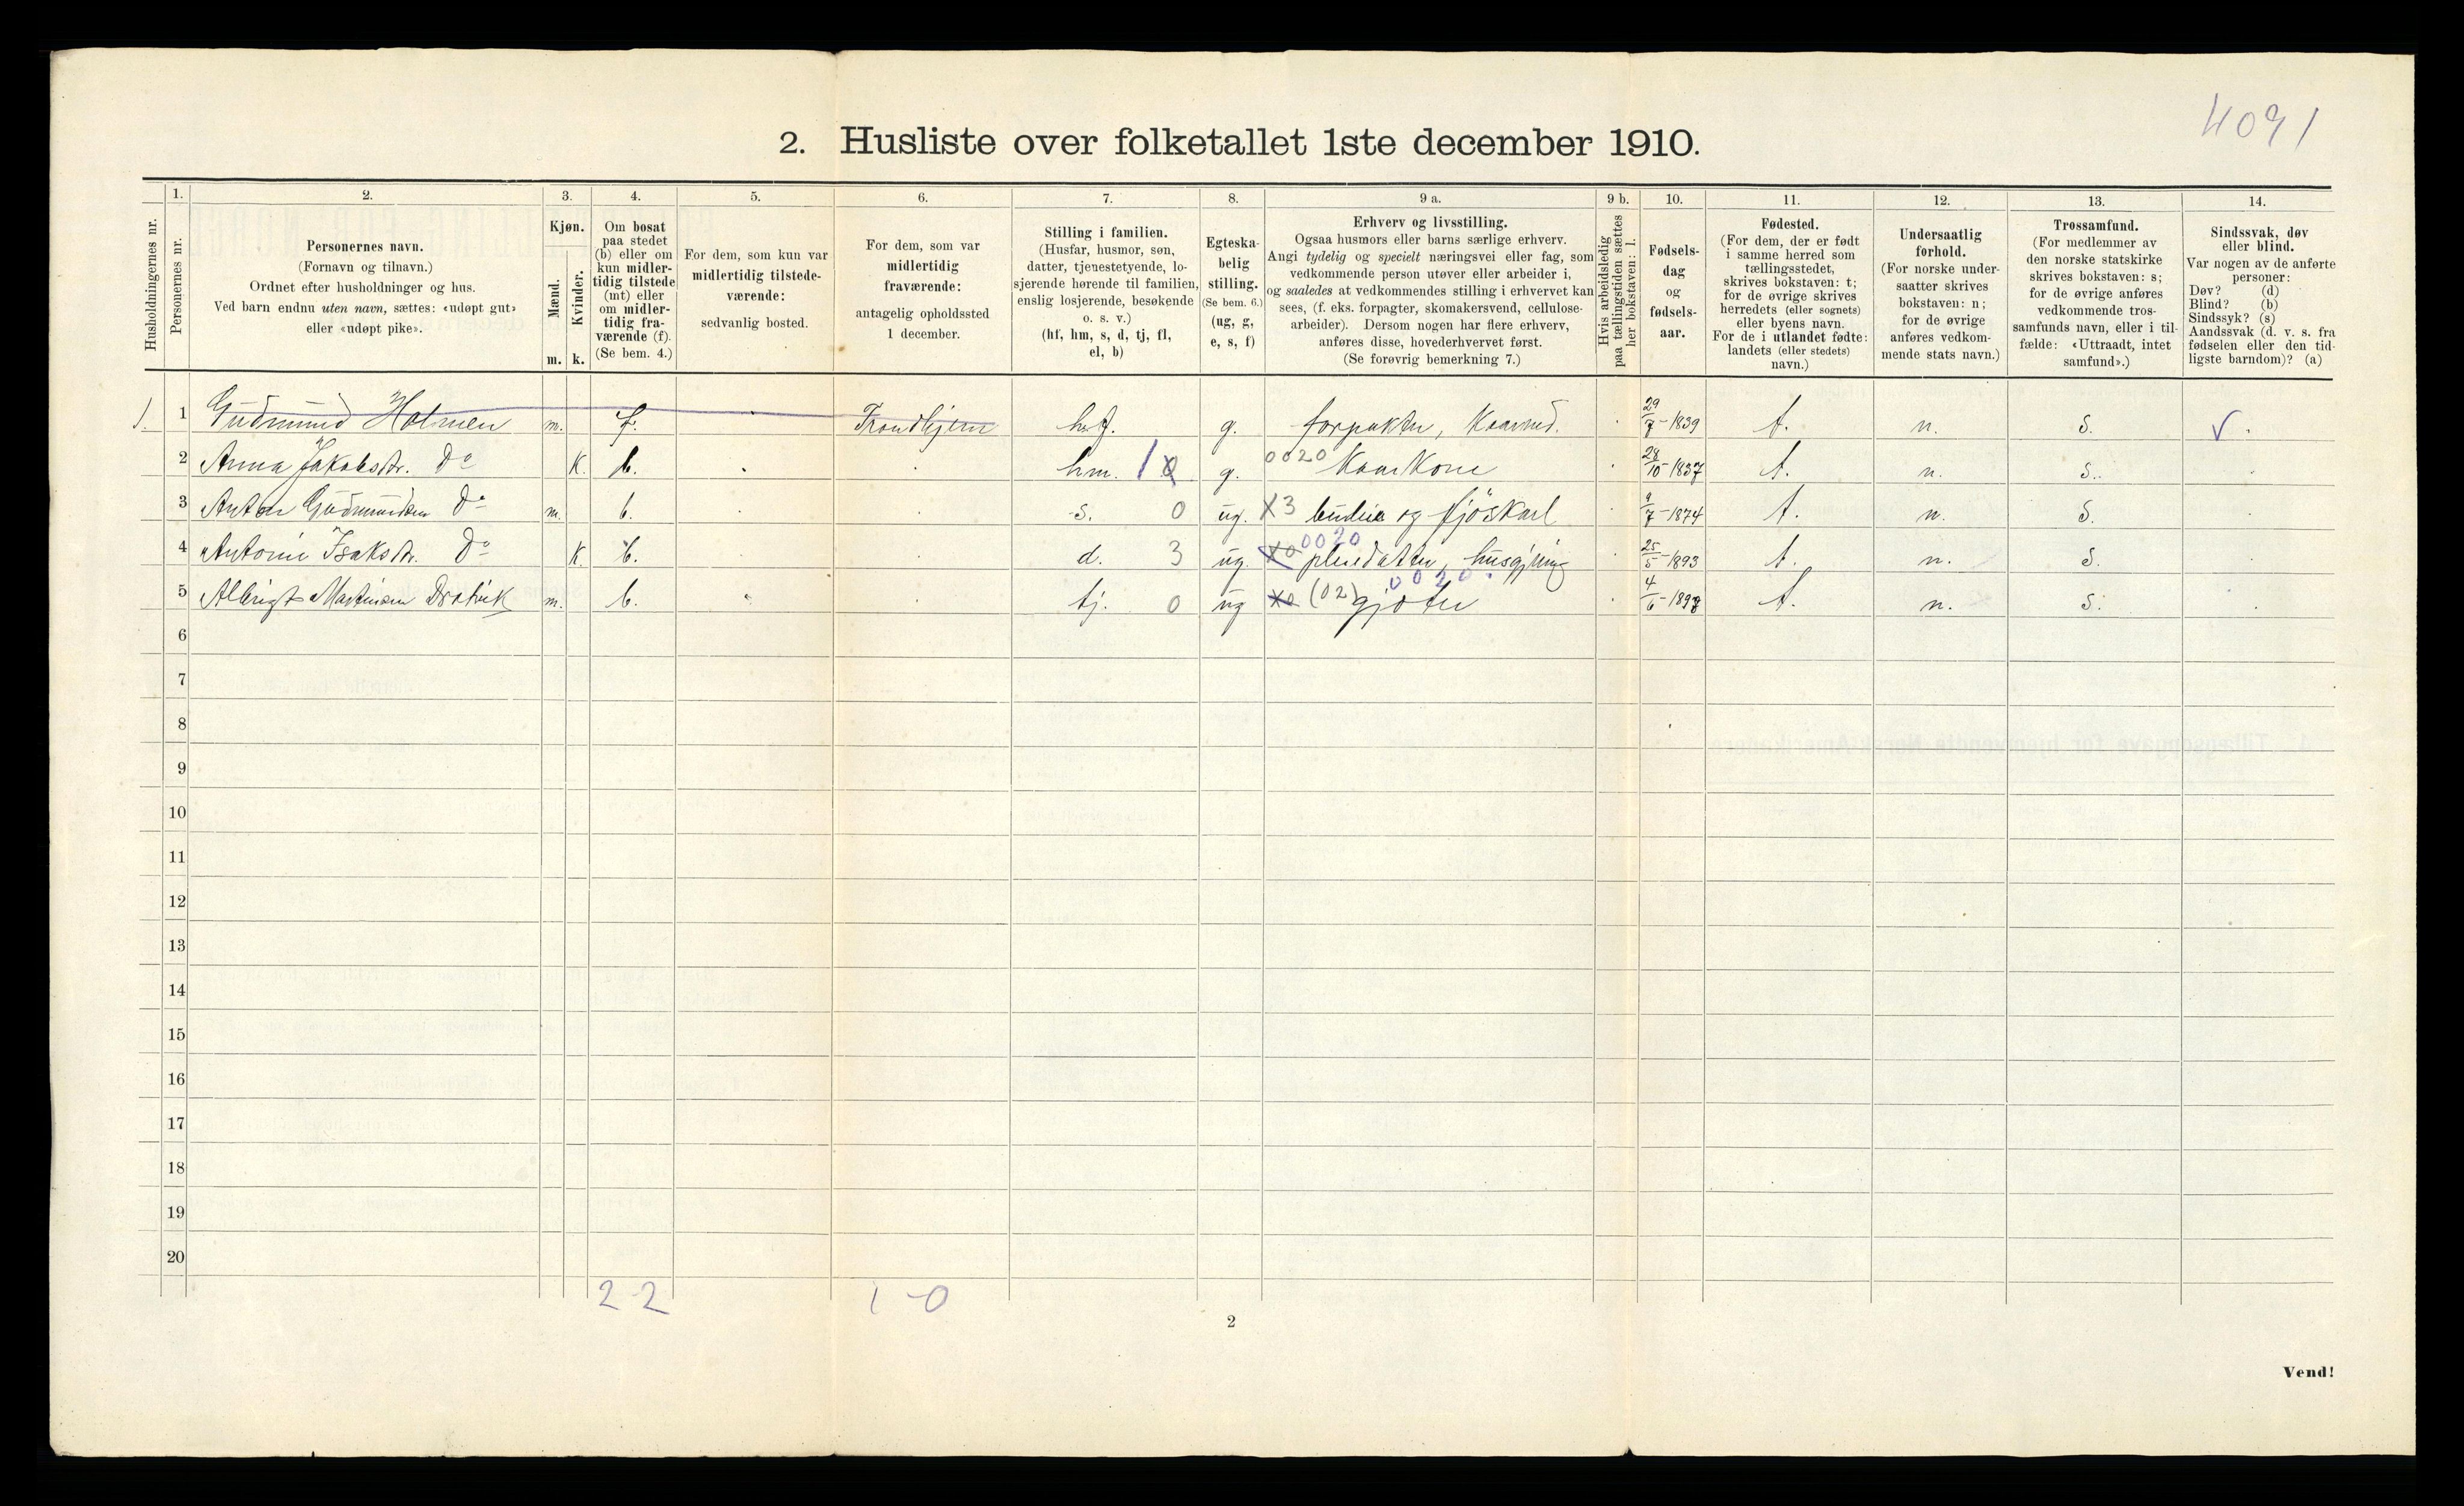 4091
2. Husliste over folketallet 1ste december 1910.
Husholdningernes nr.
1.
Personernes nr.
2.
Personernes navn.
(Fornavn og tilnavn.)
Ordnet efter husholdninger og hus.
Ved barn endnu uten navn, sættes: «udøpt gut»
eller «udøpt pike».
3.
Kjøn.
Mænd.
Kvinder.
m. k.
4.
Om bosat
paa stedet
(b) eller om
kun midler-
tidig tilstede
(mt) eller
om midler-
tidig fra-
værende (f).
(Se bem. 4.)
5.
For dem, som kun var
midlertidig tilstede-
værende:
sedvanlig bosted.
6.
For dem, som var
midlertidig
fraværende:
antagelig opholdssted
1 december.
7.
Stilling i familien.
(Husfar, husmor, søn,
datter, tjenestetyende, lo-
sjerende hørende til familien,
enslig losjerende, besøkende
o. s. v.)
(hf, hm, s, d, tj, fl,
el, b)
8.
Egteska-
belig
stilling.
(Se bem. 6.)
(ug, g,
e, s, f)
9 a.
Erhverv og livsstilling.
Ogsaa husmors eller barns særlige erhverv.
Angi tydelig og specielt næringsvei eller fag, som
vedkommende person utøver eller arbeider i,
og saaledes at vedkommendes stilling i erhvervet kan
sees, (f. eks. forpagter, skomakersvend, cellulose-
arbeider). Dersom nogen har flere erhverv,
anføres disse, hovederhvervet først.
(Se forøvrig bemerkning 7.)
9 b.
Hvis arbeidsledig
paa tællingstiden sættes
her bokstaven: l.
10.
Fødsels-
dag
og
fødsels-
aar.
11.
Fødested.
(For dem, der er født
i samme herred som
tællingsstedet,
skrives bokstaven: t;
for de øvrige skrives
herredets (eller sognets)
eller byens navn.
For de i utlandet fødte:
landets (eller stedets)
navn.)
12.
Undersaatlig
forhold.
(For norske under-
saatter skrives
bokstaven: n;
for de øvrige
anføres vedkom-
mende stats navn.)
13.
Trossamfund.
(For medlemmer av
den norske statskirke
skrives bokstaven: s;
for de øvrige anføres
vedkommende tros-
samfunds navn, eller i til-
fælde: «Uttraadt, intet
samfund».)
14.
Sindssvak, døv
eller blind.
Var nogen av de anførte
personer:
Døv? (d)
Blind? (b)
Sindssyk? (s)
Aandssvak (d. v. s. fra
fødselen eller den tid-
ligste barndom)? (a)
1. 1 Gudmund Holmen m. f. Trondhjem hf. g. 29/7-1839 t. n. s.
2 Anna Jakobsdr. Do k. b. hm. 1 g. 0020 Kaarkone 28/10-1837 t. n. s.
3 Anton Gudmundsen Do m. b. s. 0 ug. X3 budeie og fjöskarl 9/7-1874 t. n. s.
4 Antonie Isaksdr. Do k. b. d. 3 ug. 0020 pleiedatter, husgjerning 25/5-1893 t. n. s.
5 Albrigt Martinsen m. b. tj. 0 ug (02) 0020 gjæter 4/6-1898 t. n. s.
6
7
8
9
10
11
12
13
14
15
16
17
18
19
20
2 2 1-0
2
Vend!